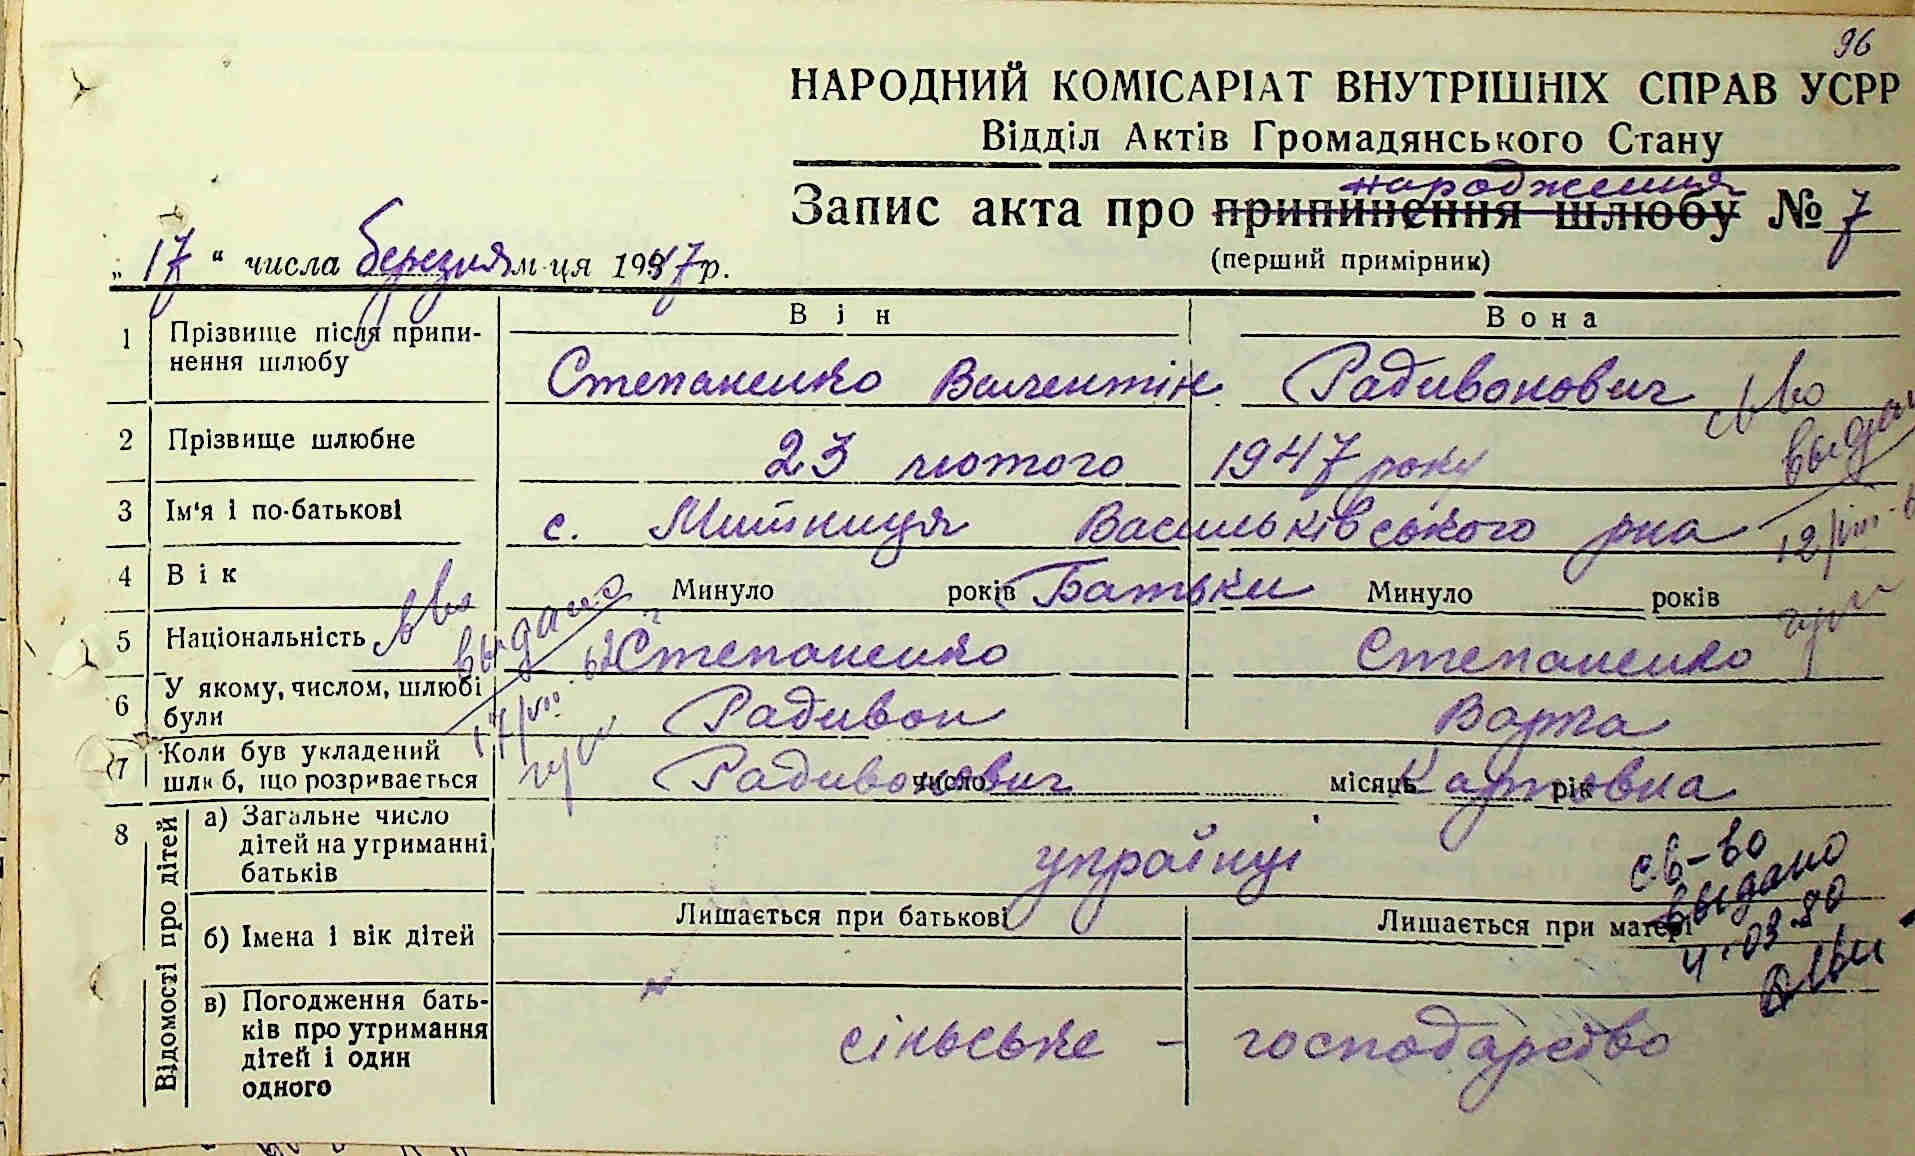 96
НАРОДНИЙ КОМІСАРІАТ ВНУТРІШНІХ СПРАВ УСРР
Відділ Актів Громадянського Стану
народження
Запис акта про припинення шлюбу № 7
(перший примірник)
„ 17 “ числа березня м-ця 1947 р.
Він Вона
1 Прізвище після припи-
нення шлюбу
Степаненко Валентін Радивонович
2 Прізвище шлюбне
23 лютого 1947 року
3 Ім'я і по-батькові
с. Митниця Васильківського рна
4 Вік Минуло років Батьки Минуло років
5 Національність Степаненко Степаненко
6 У якому, числом, шлюбі
були
Радивон Варка
7 Коли був укладений
шлюб, що розривається
Радивонович число місяць Карповна рік
8 Відомості про дітей
а) Загальне число
дітей на утриманні
батьків
українці
б) Імена і вік дітей
Лишається при батькові Лишається при матері
в) Погодження бать-
ків про утримання
дітей і один
одного
сіньське - господарство
выдано
выдано
св-во
выдано